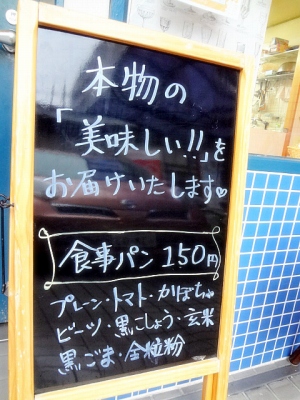 本物の
「美味しい!!」を
お届けいたします♡
食事パン 150円
プレーン・トマト・かぼちゃ
ビーツ・黒こしょう・玄米
黒ごま・全粒粉